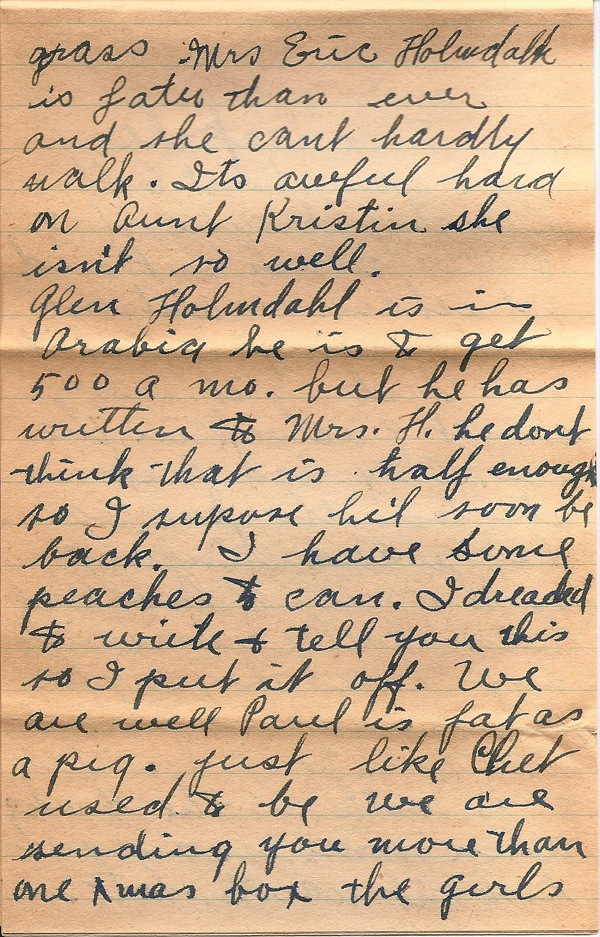 grass. Mrs Eric Holmdahl
is fater than ever
and she cant hardly
walk. Its awful hard
on Aunt Kristin she
isn't so well.
Glen Holmdahl is in
Arabia he is to get
500 a mo. but he has
written to Mrs. H. he dont
think that is half enough
so I supose he'l soon be
back. I have some
peaches to can. I dreaded
to write + tell you this
so I put it off. We
are well Paul is fat as
a pig. just like Chet
used to be we are
sending you more than
one Xmas box the girls